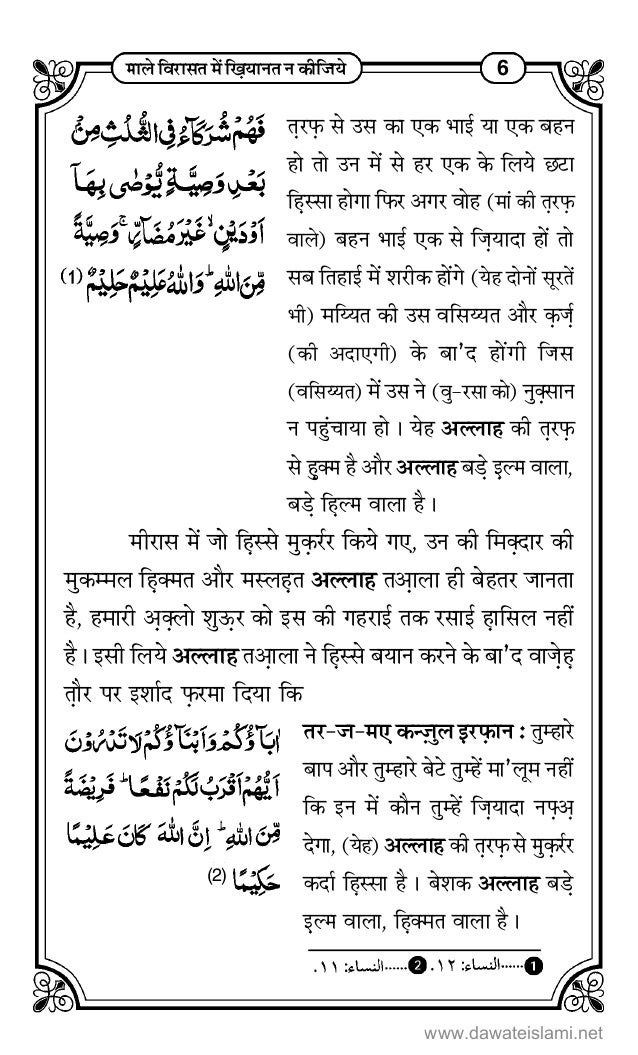 माले विरासत में ख़ियानत न कीजिये
6
فَهُمْ شُرَكَآءُ فِی الثُّلُثِ مِنْۢ
بَعْدِ وَصِیَّةٍ یُّوْصٰی بِهَاۤ
اَوْ دَیْنٍۙ غَیْرَ مُضَآرٍّۚ وَصِیَّةً
مِّنَ اللّٰهِؕ وَ اللّٰهُ عَلِیْمٌ حَلِیْمٌ (1)
त़रफ़ से उस का एक भाई या एक बहन
हो तो उन में से हर एक के लिये छटा
हि़स्सा होगा फिर अगर वोह (मां की त़रफ़
वाले) बहन भाई एक से ज़ियादा हों तो
सब तिहाई में शरीक होंगे (येह दोनों सूरतें
भी) मय्यित की उस वसिय्यत और क़र्ज़
(की अदाएगी) के बा'द होंगी जिस
(वसिय्यत) में उस ने (वु-रसा को) नुक़्सान
न पहुंचाया हो । येह अल्लाह की त़रफ़
से ह़ुक्म है और अल्लाह बड़े इ़ल्म वाला,
बड़े ह़िल्म वाला है ।
मीरास में जो हि़स्से मुक़र्रर किये गए, उन की मिक़्दार की
मुकम्मल ह़िक्मत और मस्लह़त अल्लाह तआ़ला ही बेहतर जानता
है, हमारी अ़क़्लो शुऊ़र को इस की गहराई तक रसाई ह़ासिल नहीं
है । इसी लिये अल्लाह तआ़ला ने हि़स्से बयान करने के बा'द वाजे़ह़
त़ौर पर इर्शाद फ़रमा दिया कि
اٰبَآؤُكُمْ وَ اَبْنَآؤُكُمْ لَا تَدْرُوْنَ
اَیُّهُمْ اَقْرَبُ لَكُمْ نَفْعًاؕ فَرِیْضَةً
مِّنَ اللّٰهِؕ اِنَّ اللّٰهَ كَانَ عَلِیْمًا
حَكِیْمًا (2)
तर-ज-मए कन्ज़ुल इ़रफ़ान : तुम्हारे
बाप और तुम्हारे बेटे तुम्हें मा'लूम नहीं
कि इन में कौन तुम्हें ज़ियादा नफ़्अ़
देगा, (येह) अल्लाह की त़रफ़ से मुक़र्रर
कर्दा हि़स्सा है । बेशक अल्लाह बड़े
इ़ल्म वाला, ह़िक्मत वाला है ।
1 ......النساء: ۱۲. 2 ......النساء: ۱۱.
www.dawateislami.net